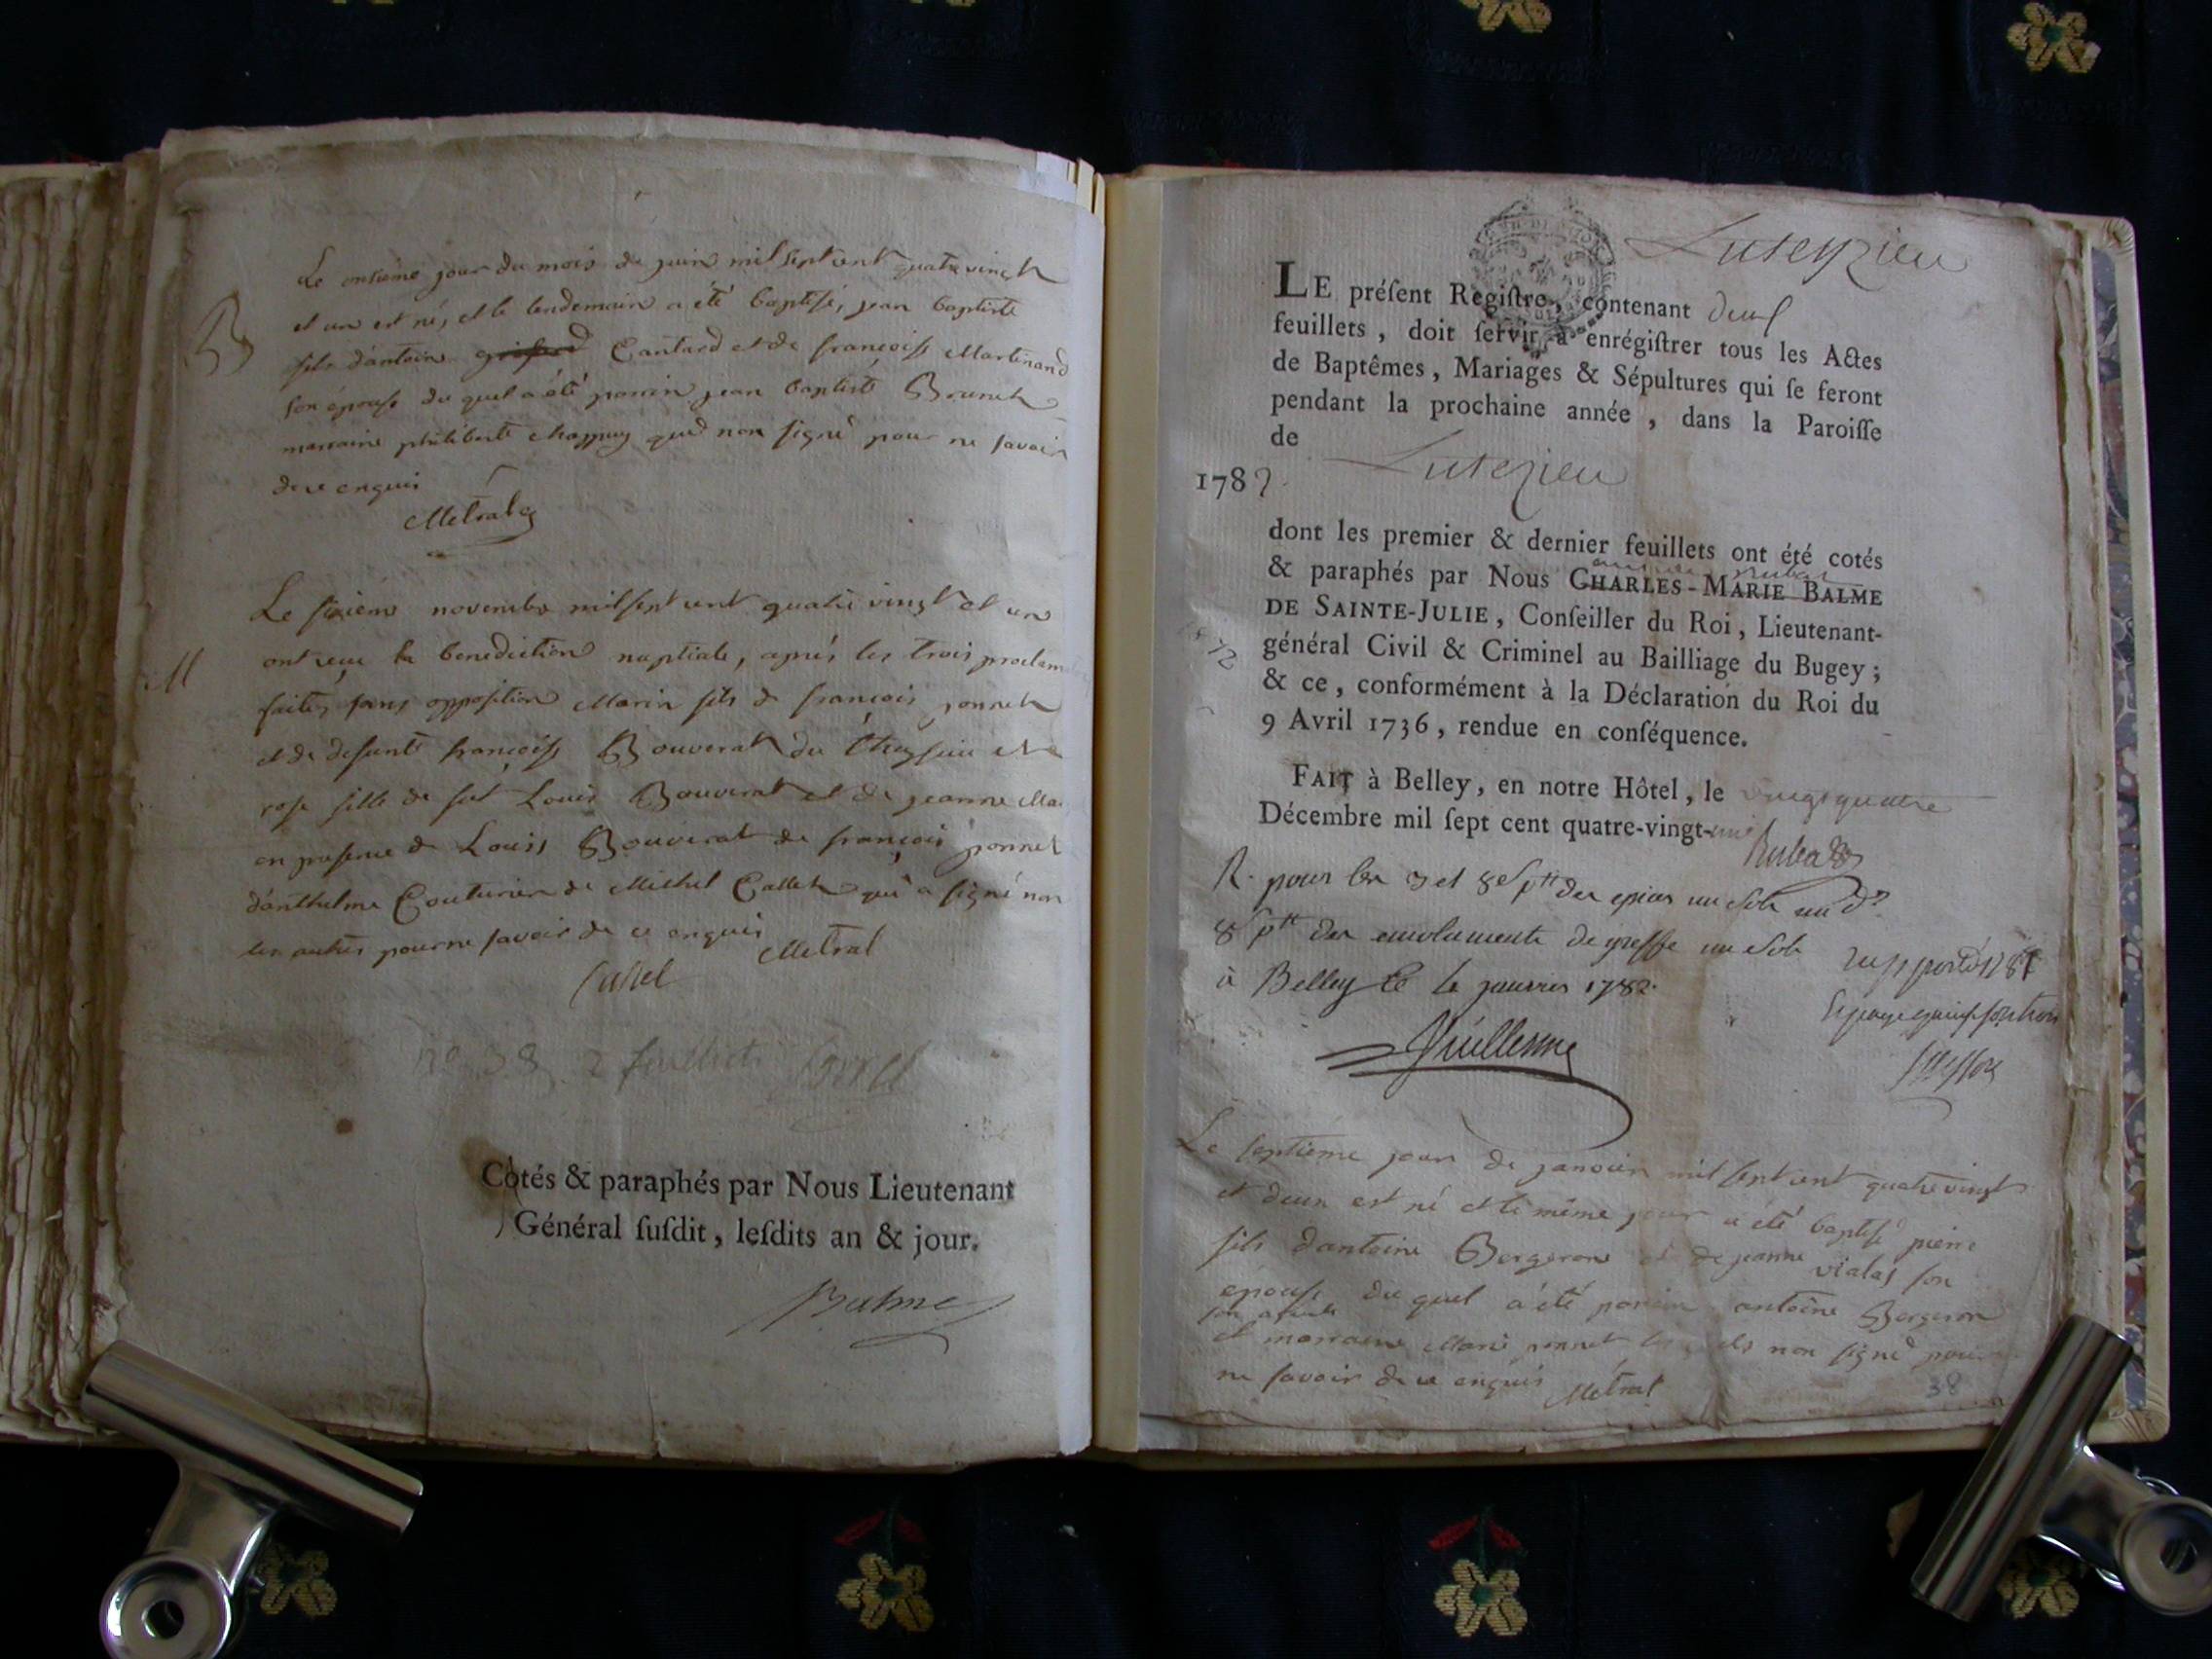 Le onsième jour du mois de juin mil sept cent quatre vingt
et un est né, et le lendemain a été baptisé, jean baptiste
B
fils d'antoine Cantard et de françoise Martinand
son épouse du quel a été parrin jean baptiste Brunet
marraine philiberte chappuy qui non signé pour ne savoir
de ce enquis
Metral
Le sixième novembre mil sept cent quatre vingt et un
M
ont reçu la benediction nuptiale, après les trois proclam
faites sans opposition Marin fils de françois ponnet
et de defunte françoise Bouverat du et
rose fille de feu Louis Bouverat et de jeanne Ma
en presence de Louis Bouverat de françois ponnet
d'anthelme Couturier de Michel Callet qui a signé non
les autres pour ne savoir de ce enquis
Metral
Callet
no 38 2 feuillets
Cotés & paraphés par Nous Lieutenant
Général ſuſdit, leſdits an & jour.
Balme
Lutezieu
LE préſent Regiſtre, contenant deux
feuillets, doit ſervir à enrégiſtrer tous les Actes
de Baptêmes, Mariages & Sépultures qui ſe feront
pendant la prochaine année, dans la Paroiſſe
de Lutezieu
1782
dont les premier & dernier feuillets ont été cotés
& paraphés par Nous CHARLES-MARIE BALME
DE SAINTE-JULIE, Conſeiller du Roi, Lieutenant-
général Civil & Criminel au Bailliage du Bugey;
& ce, conformément à la Déclaration du Roi du
9 Avril 1736, rendue en conſéquence.
FAIT à Belley, en notre Hôtel, le vingt quatre
Décembre mil ſept cent quatre-vingt-un
R. pour les 3 et 8 s ptt des epices un sols
8 s ptt des emoluments de greffe un sols
à Belley le 4 janvier 1782.
Guillerme
Le septième jour de janvier mil sept cent quatre vingt
et deux est né et le même jour a été baptisé pierre
fils d'antoine Bergeron et de jeanne vialas son
épouse du quel a été parrin antoine Bergeron
et marraine Marie ponnet non signé pour
ne savoir de ce enquis Metral
38